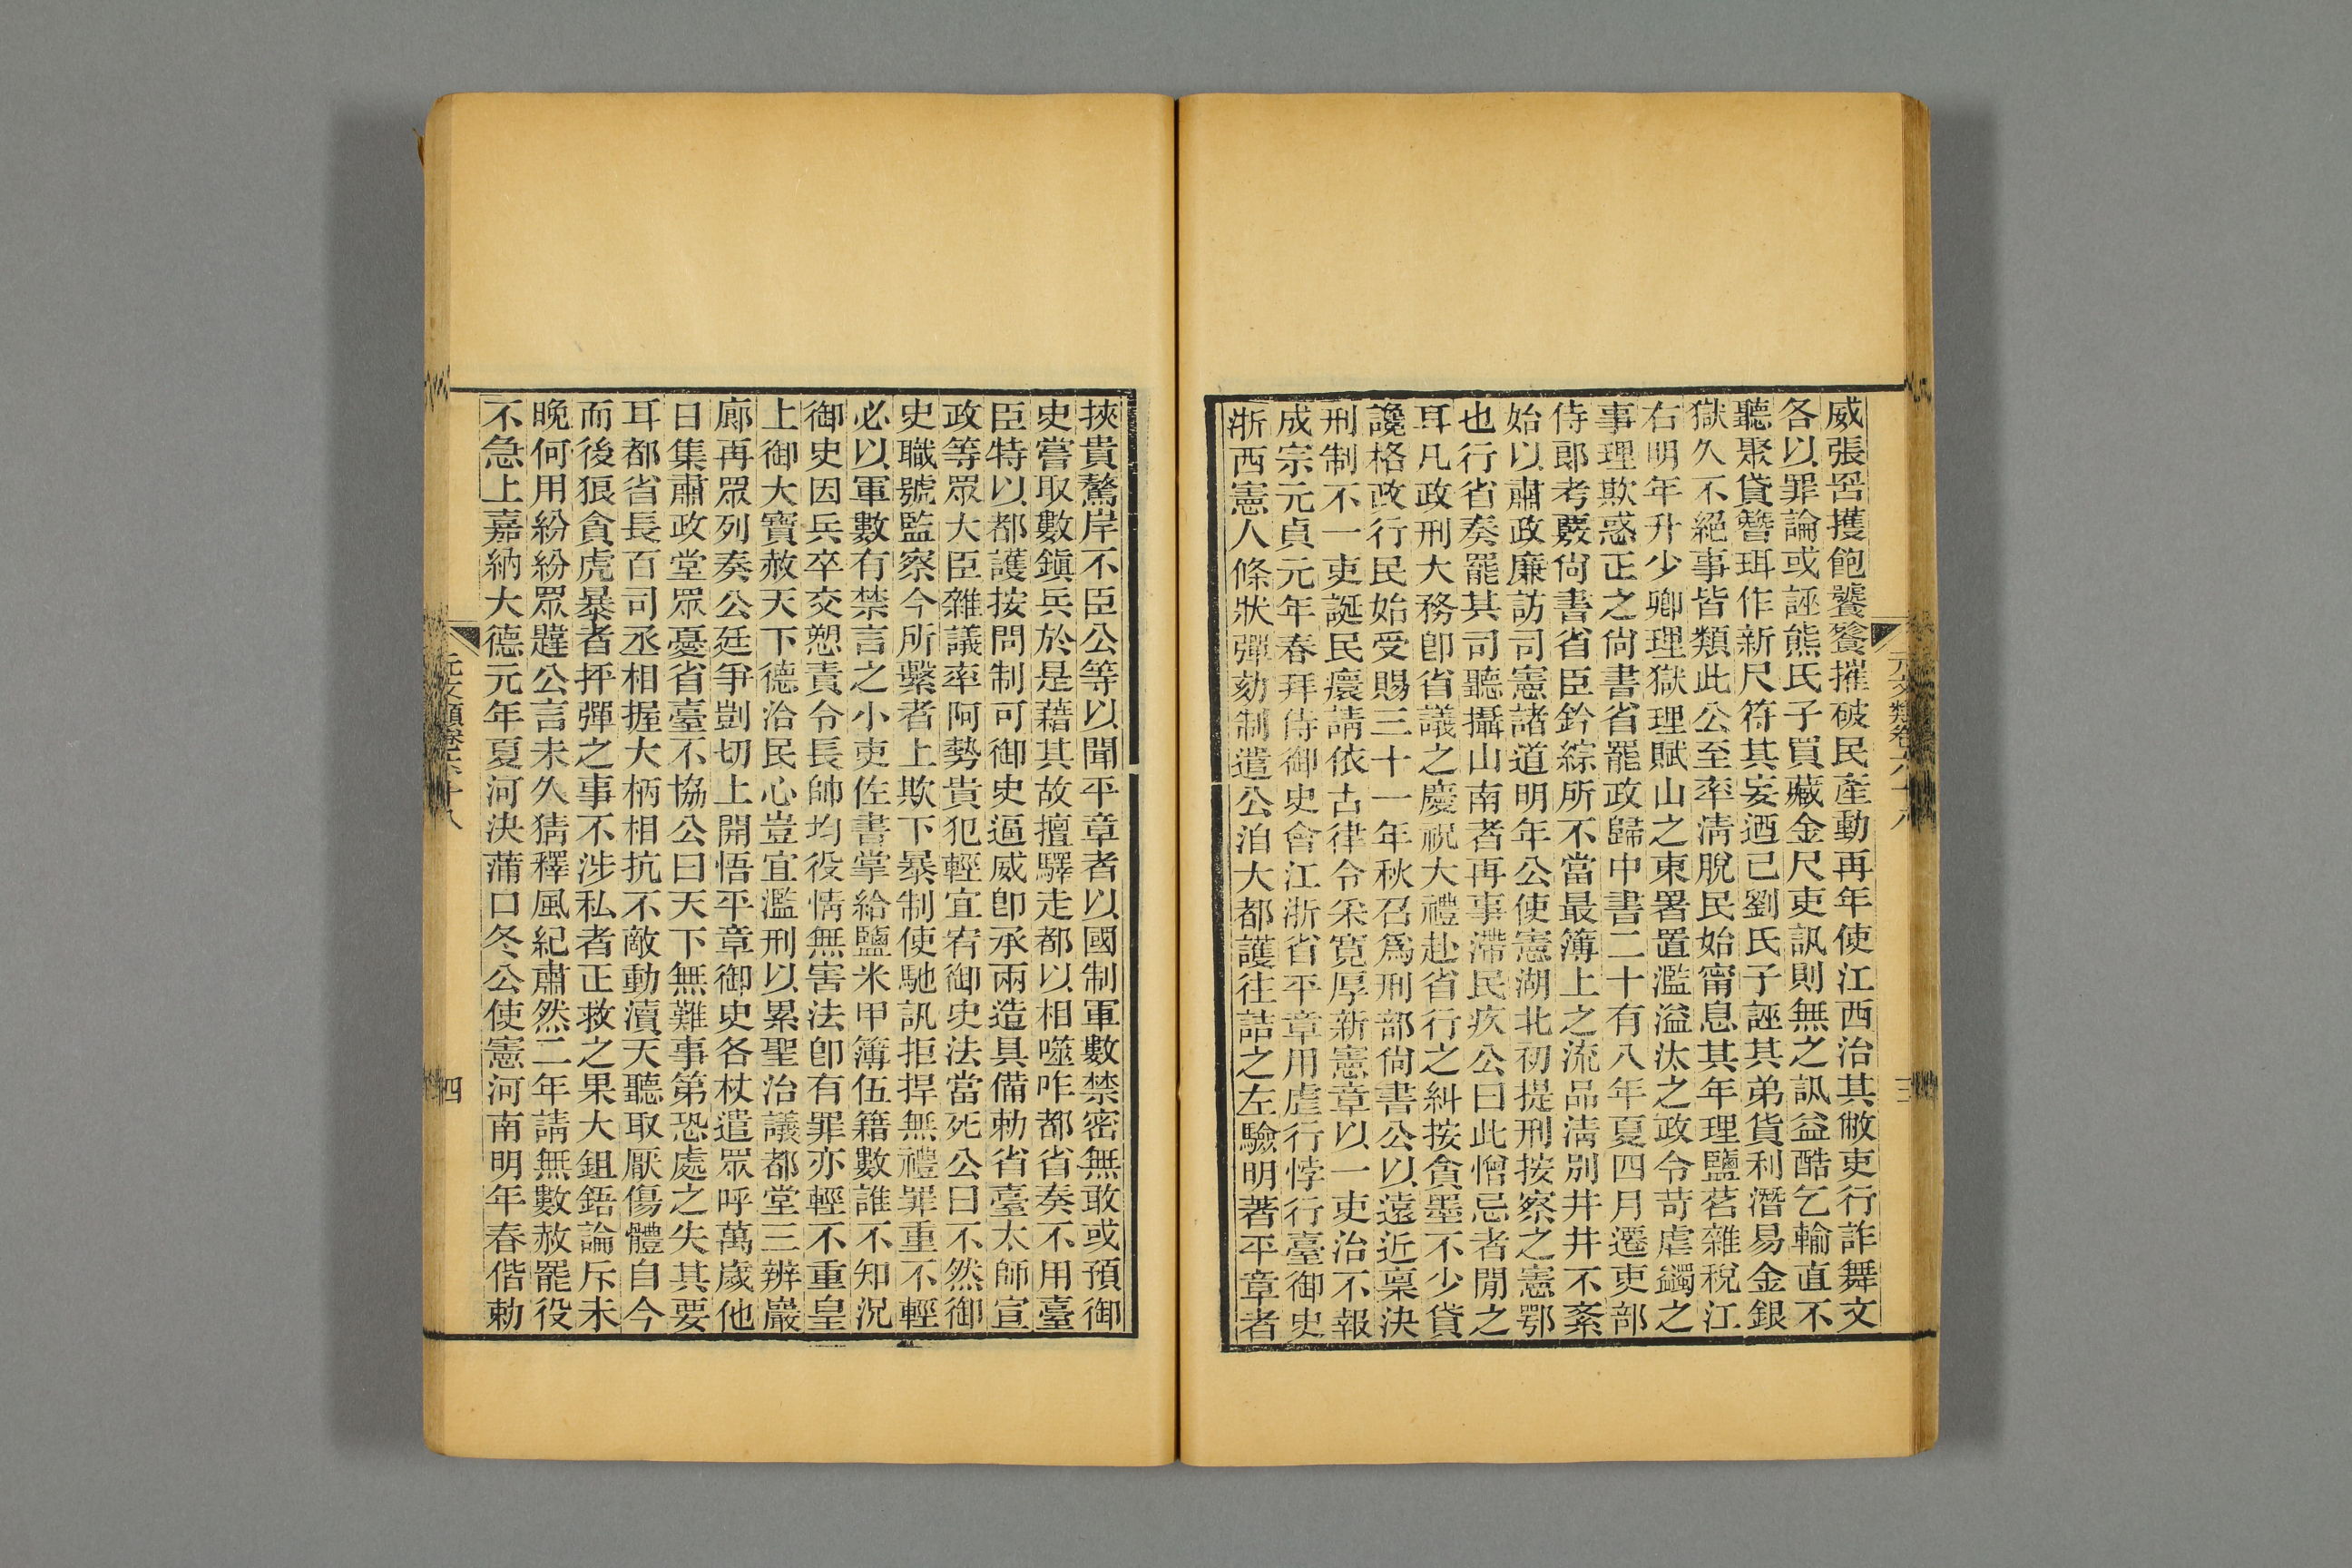 威張罟擭飽饕餮摧破民產動再年使江西治其敝吏行詐舞文
各以罪論或誣熊氏子買藏金尺吏訊則無之訊益酷乞輸直不
聽聚貸簪珥作新尺符其妄迺已劉氏子誣其弟貨利潛易金銀
獄久不絕事皆類此公至率清脫民始甯息其年理鹽茗雜稅江
右明年升少卿理獄理賦山之東署置濫溢汰之政令苛虐蠲之
事理欺惑正之尙書省罷政歸中書二十有八年夏四月遷吏部
侍郎考覈尙書省臣銓綜所不當最簿上之流品淸別井井不紊
始以肅政廉訪司憲諸道明年公使憲湖北初提刑按察之憲鄂
也行省奏罷其司聽攝山南者再事滯民疚公曰此憎忌者閒之
耳凡政刑大務卽省議之慶祝大禮赴省行之糾按貪墨不少貸
讒格政行民始受賜三十一年秋召爲刑部尙書公以遠近稟決
刑制不一吏誕民瘝請依古律令采寬厚新憲章以一吏治不報
成宗元貞元年春拜侍御史會江浙省平章用虐行悖行臺御史
浙西憲人條狀彈劾制遣公洎大都護往詰之左驗明著平章者
元文類卷六十八
三
挾貴驁岸不臣公等以聞平章者以國制軍數禁密無敢或預御
史嘗取數鎭兵於是藉其故擅驛走都以相噬咋都省奏不用臺
臣特以都護按問制可御史逼威卽承兩造具備勅省臺太師宣
政等眾大臣雜議率阿勢貴犯輕宜宥御史法當死公曰不然御
史職號監察今所繫者上欺下暴制使馳訊拒捍無禮罪重不輕
必以軍數有禁言之小吏佐書掌給鹽米甲簿伍籍數誰不知況
御史因兵卒交愬責令長帥均役情無害法卽有罪亦輕不重皇
上御大寶赦天下德洽民心豈宜濫刑以累聖治議都堂三辨巖
廊再眾列奏公廷爭剴切上開悟平章御史各杖遣眾呼萬歲他
日集肅政堂眾憂省臺不協公曰天下無難事第恐處之失其要
耳都省長百司丞相握大柄相抗不敵動瀆天聽取厭傷體自今
而後狠貪虎暴者抨彈之事不涉私者正救之果大鉏鋙論斥未
晚何用紛紛眾韙公言未久猜釋風紀肅然二年請無數赦罷役
不急上嘉納大德元年夏河決蒲口冬公使憲河南明年春偕勅
元文類卷六十八
四